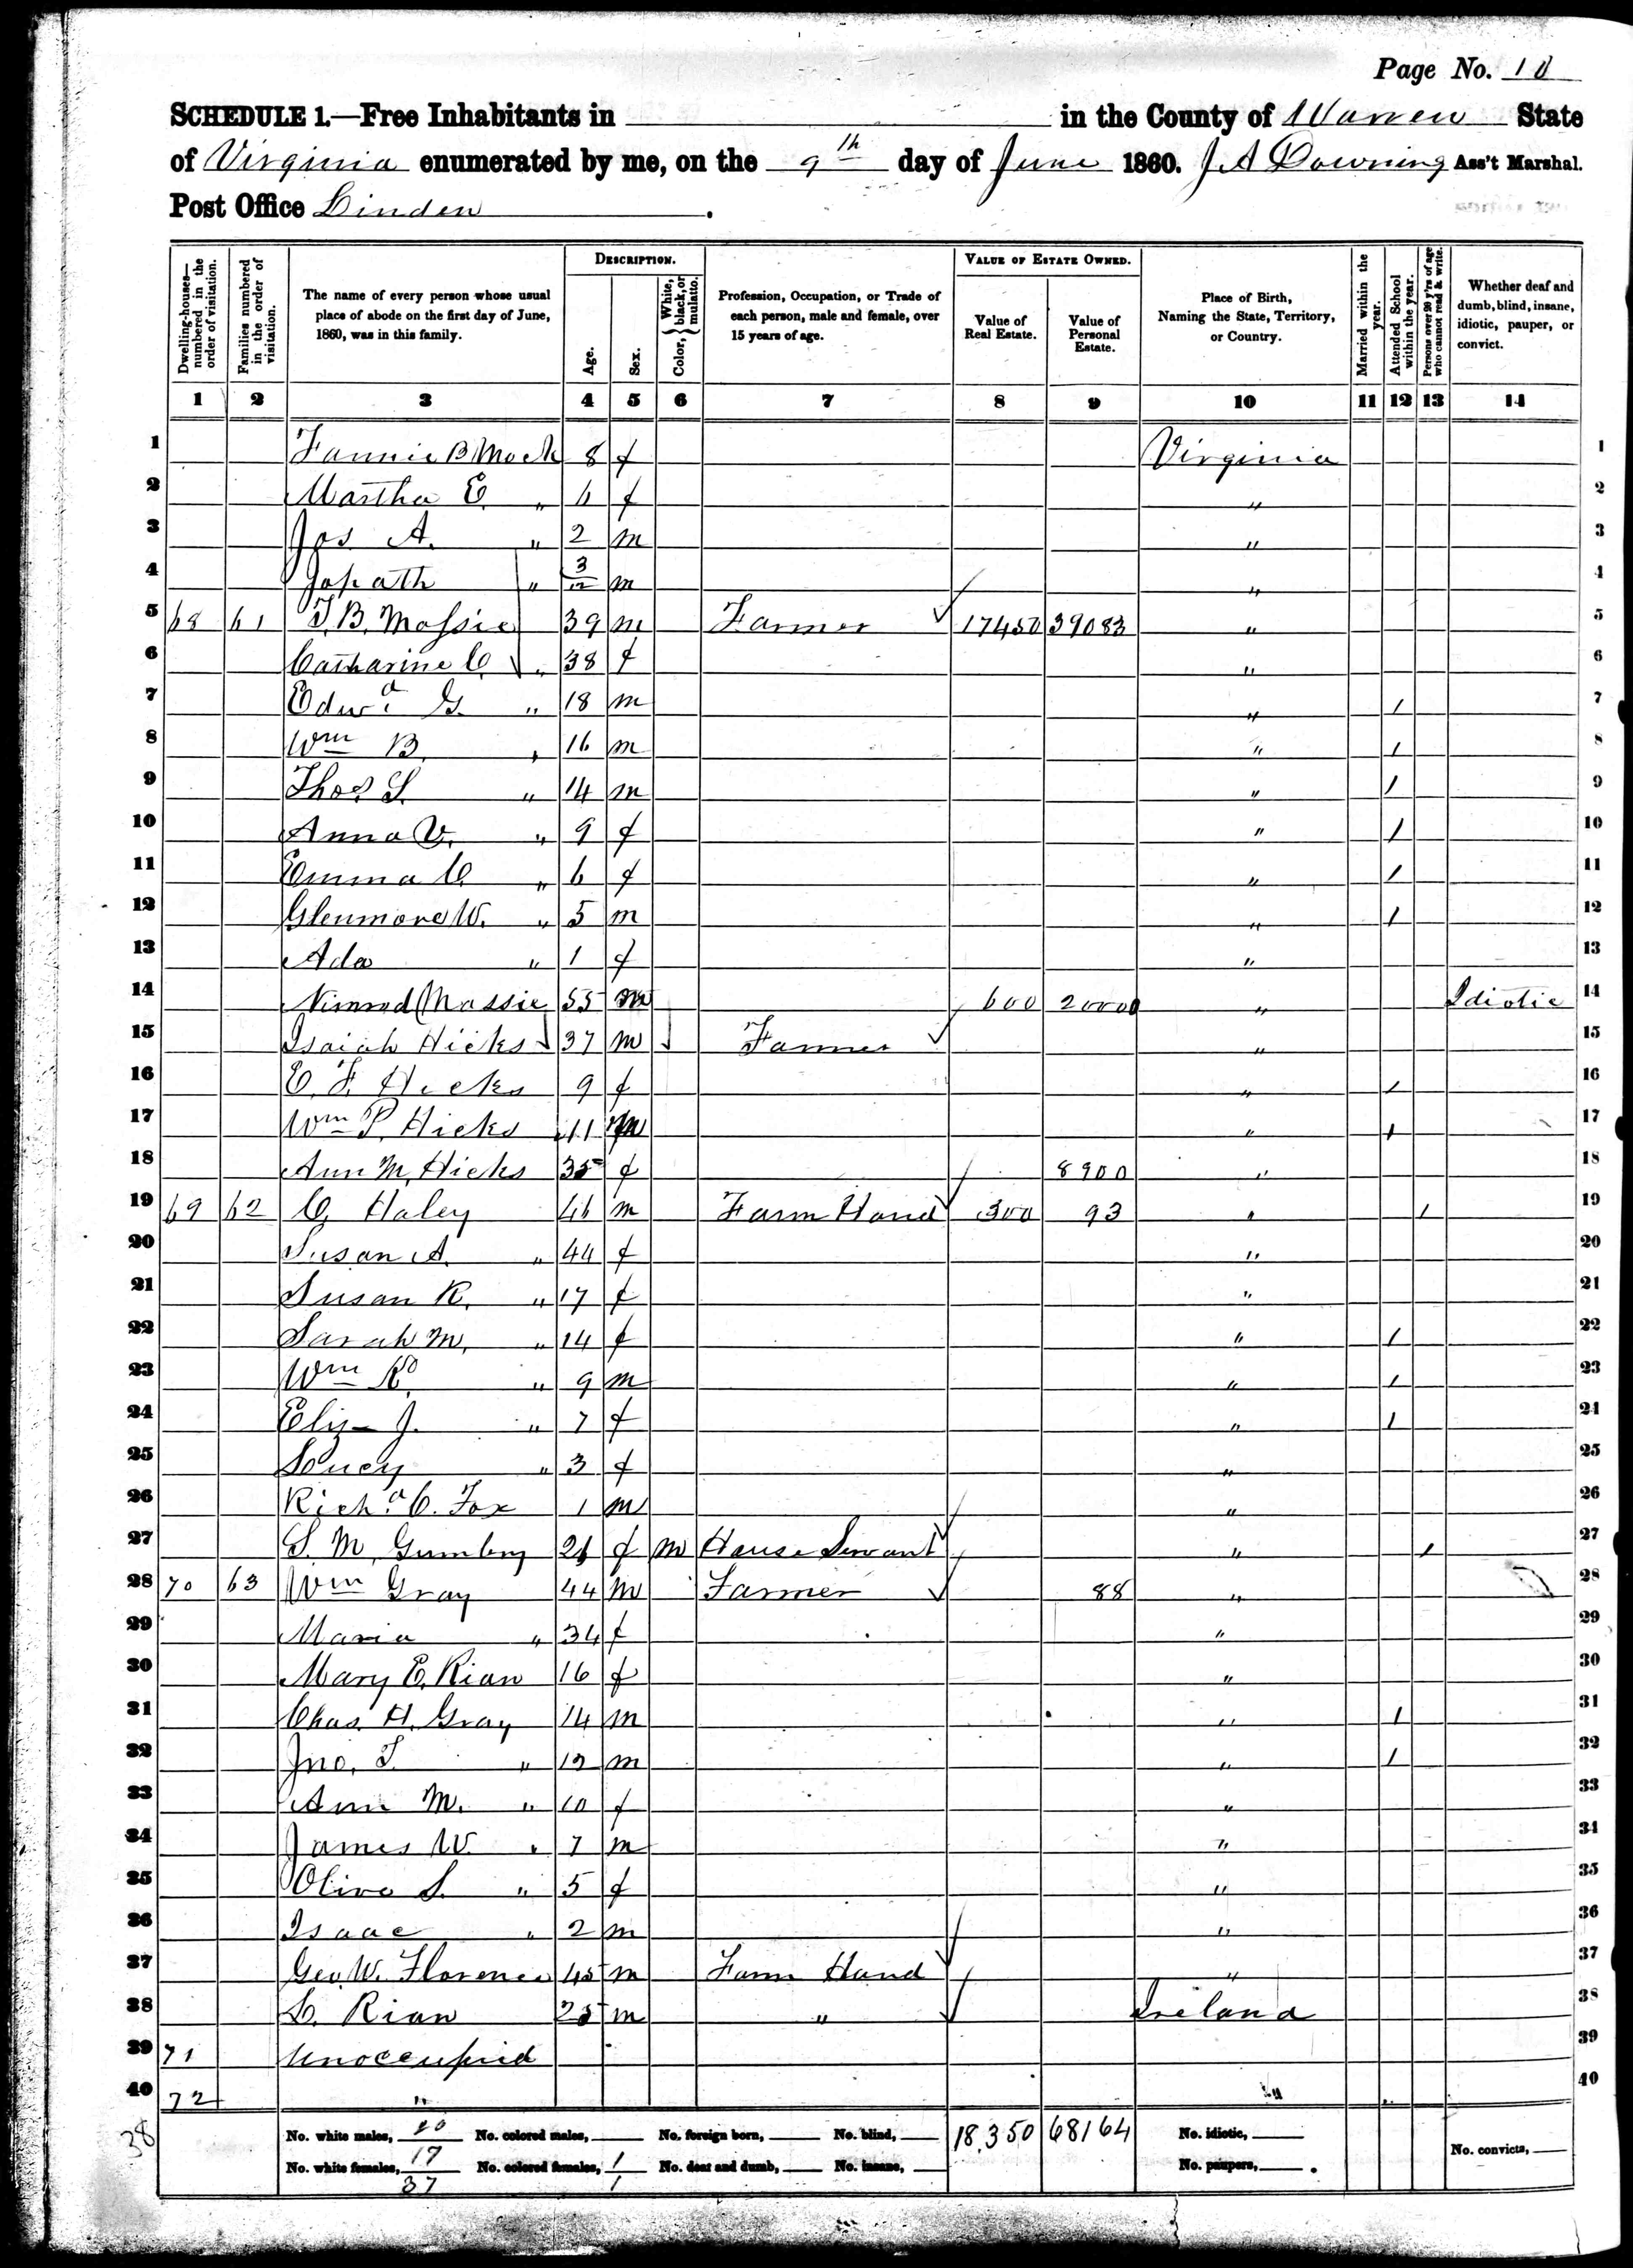 Page No. 10
SCHEDULE 1.—Free Inhabitants in in the County of Warren State
of Virginia enumerated by me, on the 9th day of June 1860. J. A Downing Ass't Marshal.
Post Office Linden.
DESCRIPTION. VALUE OF ESTATE OWNED.
Dwelling-houses—numbered in the order of visitation. Families numbered in the order of visitation. The name of every person whose usual place of abode on the first day of June, 1860, was in this family. Age. Sex. Color, {White, black, or mulatto. Profession, Occupation, or Trade of each person, male and female, over 15 years of age. Value of Real Estate. Value of Personal Estate. Place of Birth, Naming the State, Territory, or Country. Married within the year. Attended School within the year. Persons over 20 y'rs of age who cannot read & write. Whether deaf and dumb, blind, insane, idiotic, pauper, or convict.
1 2 3 4 5 6 7 8 9 10 11 12 13 14
1 Fannie B Mock 8 f Virginia 1
2 Martha E. " 6 f " 2
3 Jos A. " 2 m " 3
4 " 3/12 m " 4
5 68 61 T. B. Massie 39 m Farmer 17450 39083 " 5
6 Catharine C. " 38 f " 6
7 Edwd G. " 18 m " / 7
8 Wm B. " 16 m " / 8
9 Thos S. " 14 m " / 9
10 Anna V. " 9 f " / 10
11 Emma C " 6 f " / 11
12 Glenmore W. " 5 m " / 12
13 Ada " 1 f " 13
14 Nimrod Massie 55 m 600 20000 " Idiotic 14
15 Isaiah Hicks 37 m Farmer " 15
16 E. F. Hicks 9 f " / 16
17 Wm P. Hicks 11 m " / 17
18 Ann M. Hicks 35 f 8900 " 18
19 69 62 C. Haley 46 m Farm Hand 300 93 " / 19
20 Susan A. " 44 f " 20
21 Susan R. " 17 f " 21
22 Sarah M. " 14 f " / 22
23 Wm R. " 9 m " / 23
24 Eliz J. " 7 f " / 24
25 Lucy " 3 f " 25
26 Richd C. Fox 1 m " 26
27 S. M. 26 f m House Servant " / 27
28 70 63 Wm Gray 44 m Farmer 88 " 28
29 Maria " 34 f " 29
30 Mary E. Rian 16 f " 30
31 Chas. H. Gray 14 m " / 31
32 Jno. T. " 12 m " / 32
33 Ann M. " 10 f " 33
34 James W. " 7 m " 34
35 Olive S. " 5 f " 35
36 Isaac " 2 m " 36
37 Geo W. Florence 45 m Farm Hand " 37
38 L. Rian 25 m " Ireland 38
39 71 Unoccupied 39
40 72 " " 40
38
No. white males, 20 No. colored males, No. foreign born, No. blind, 18,350 68164 No. idiotic,
No. white females, 17 No. colored females, 1 No. deaf and dumb, No. insane, No. paupers, No. convicts,
37 1